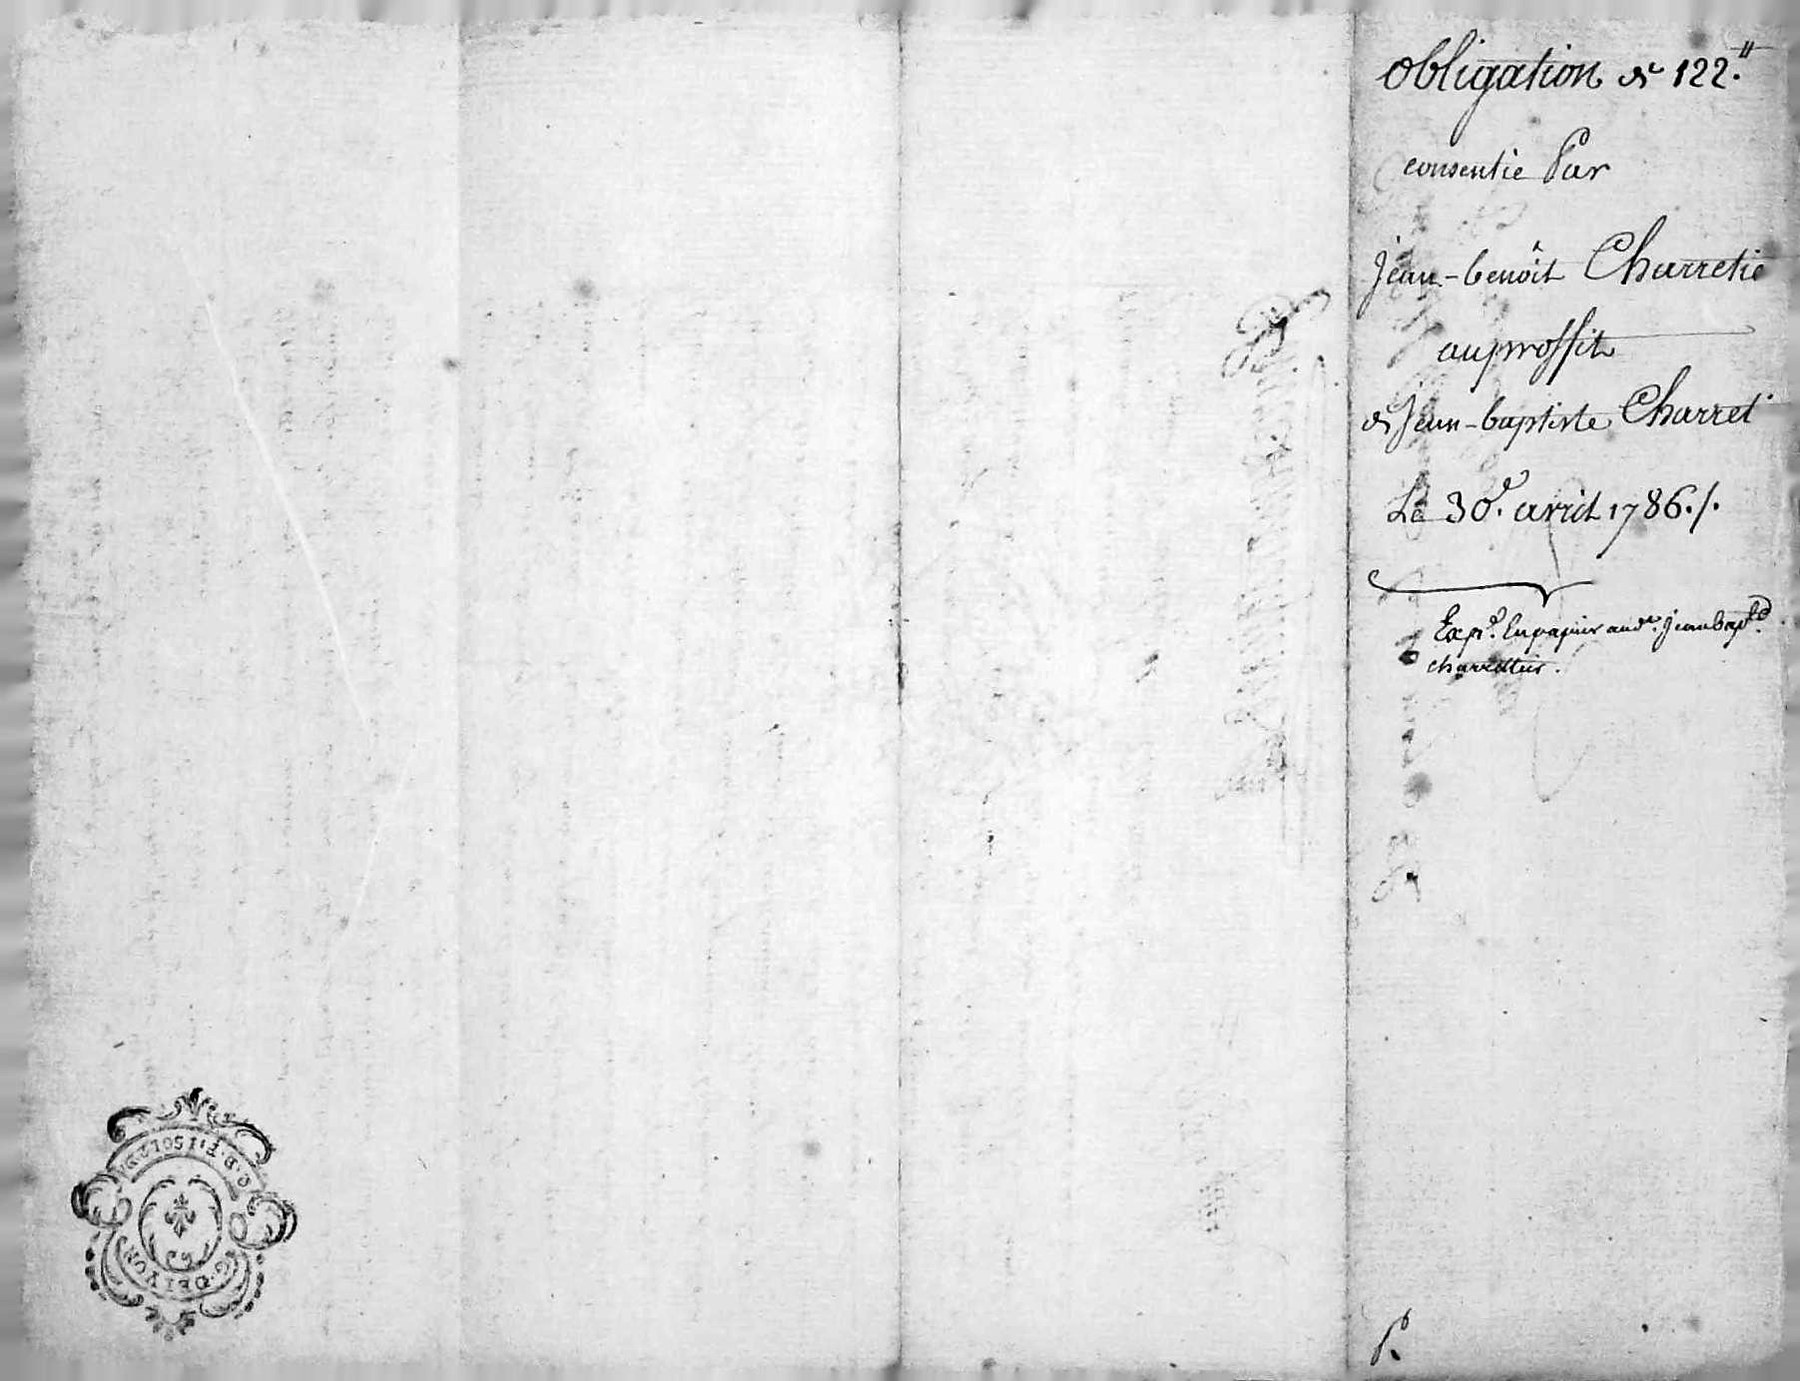 obligation de 122.#
consentie Par
jean-benoit Charretie
au proffit
de Jean-baptiste Charret
Le 30.e avril 1786./.
Exp.e En papier aud.t jean bap.te
charretier.
G. DE LYON